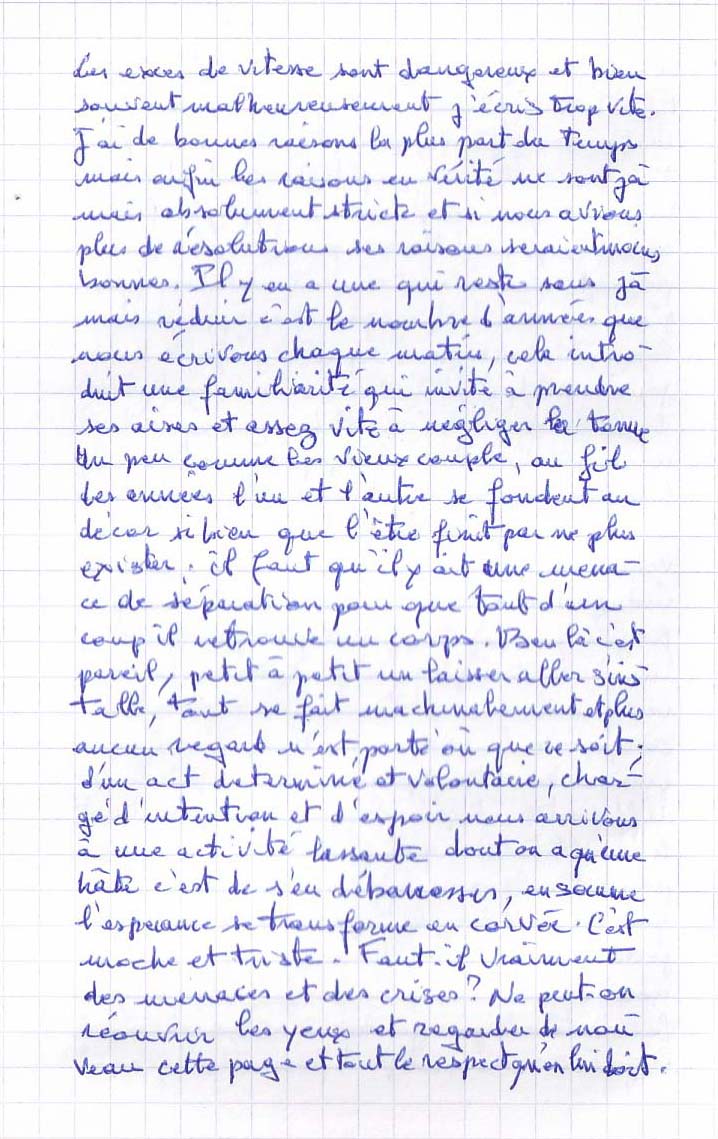 Les exces de vitesse sont dangereux et bien
souvent malheureusement j'écris trop vite.
J'ai de bonnes raisons la plus part du temps
mais enfin les raisons en vérité ne sont ja
mais absolument stricte et si nous avions
plus de résolutions ses raisons seraient moins
bonnes. Il y en a une qui reste sans ja
mais réduire c'est le nombre d'années que
nous écrivons chaque matin, cela intro-
duit une familiarité qui invite à prendre
ses aises et assez vite à négliger la tenue
Un peu comme les vieux couple, au fil
des années l'un et l'autre se fondent au
décor si bien que l'être finit par ne plus
exister; il faut qu'il y ait une mena-
ce de séparation pour que tout d'un
coup il retrouve un corps. Ben là c'est
pareil, petit à petit un laisser aller s'ins
talle, tout se fait machinalement et plus
aucun regard n'est porté où que ce soit;
d'un act determiné et volontaire, char-
gé d'intention et d'espoir nous arrivons
à une activité lassante dont on a qu'une
hâte c'est de s'en débarrasser, en somme
l'esperance se transforme en corvée. C'est
moche et triste. Faut-il vraiment
des menaces et des crises? Ne peut-on
réouvrir les yeux et regarder de nou
veau cette page et tout le respect qu'on lui doit.